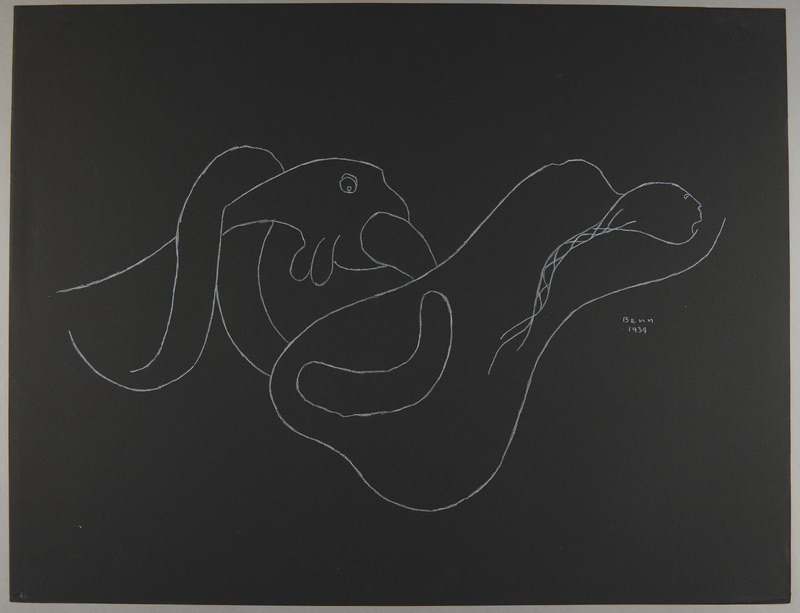 Benn
1939